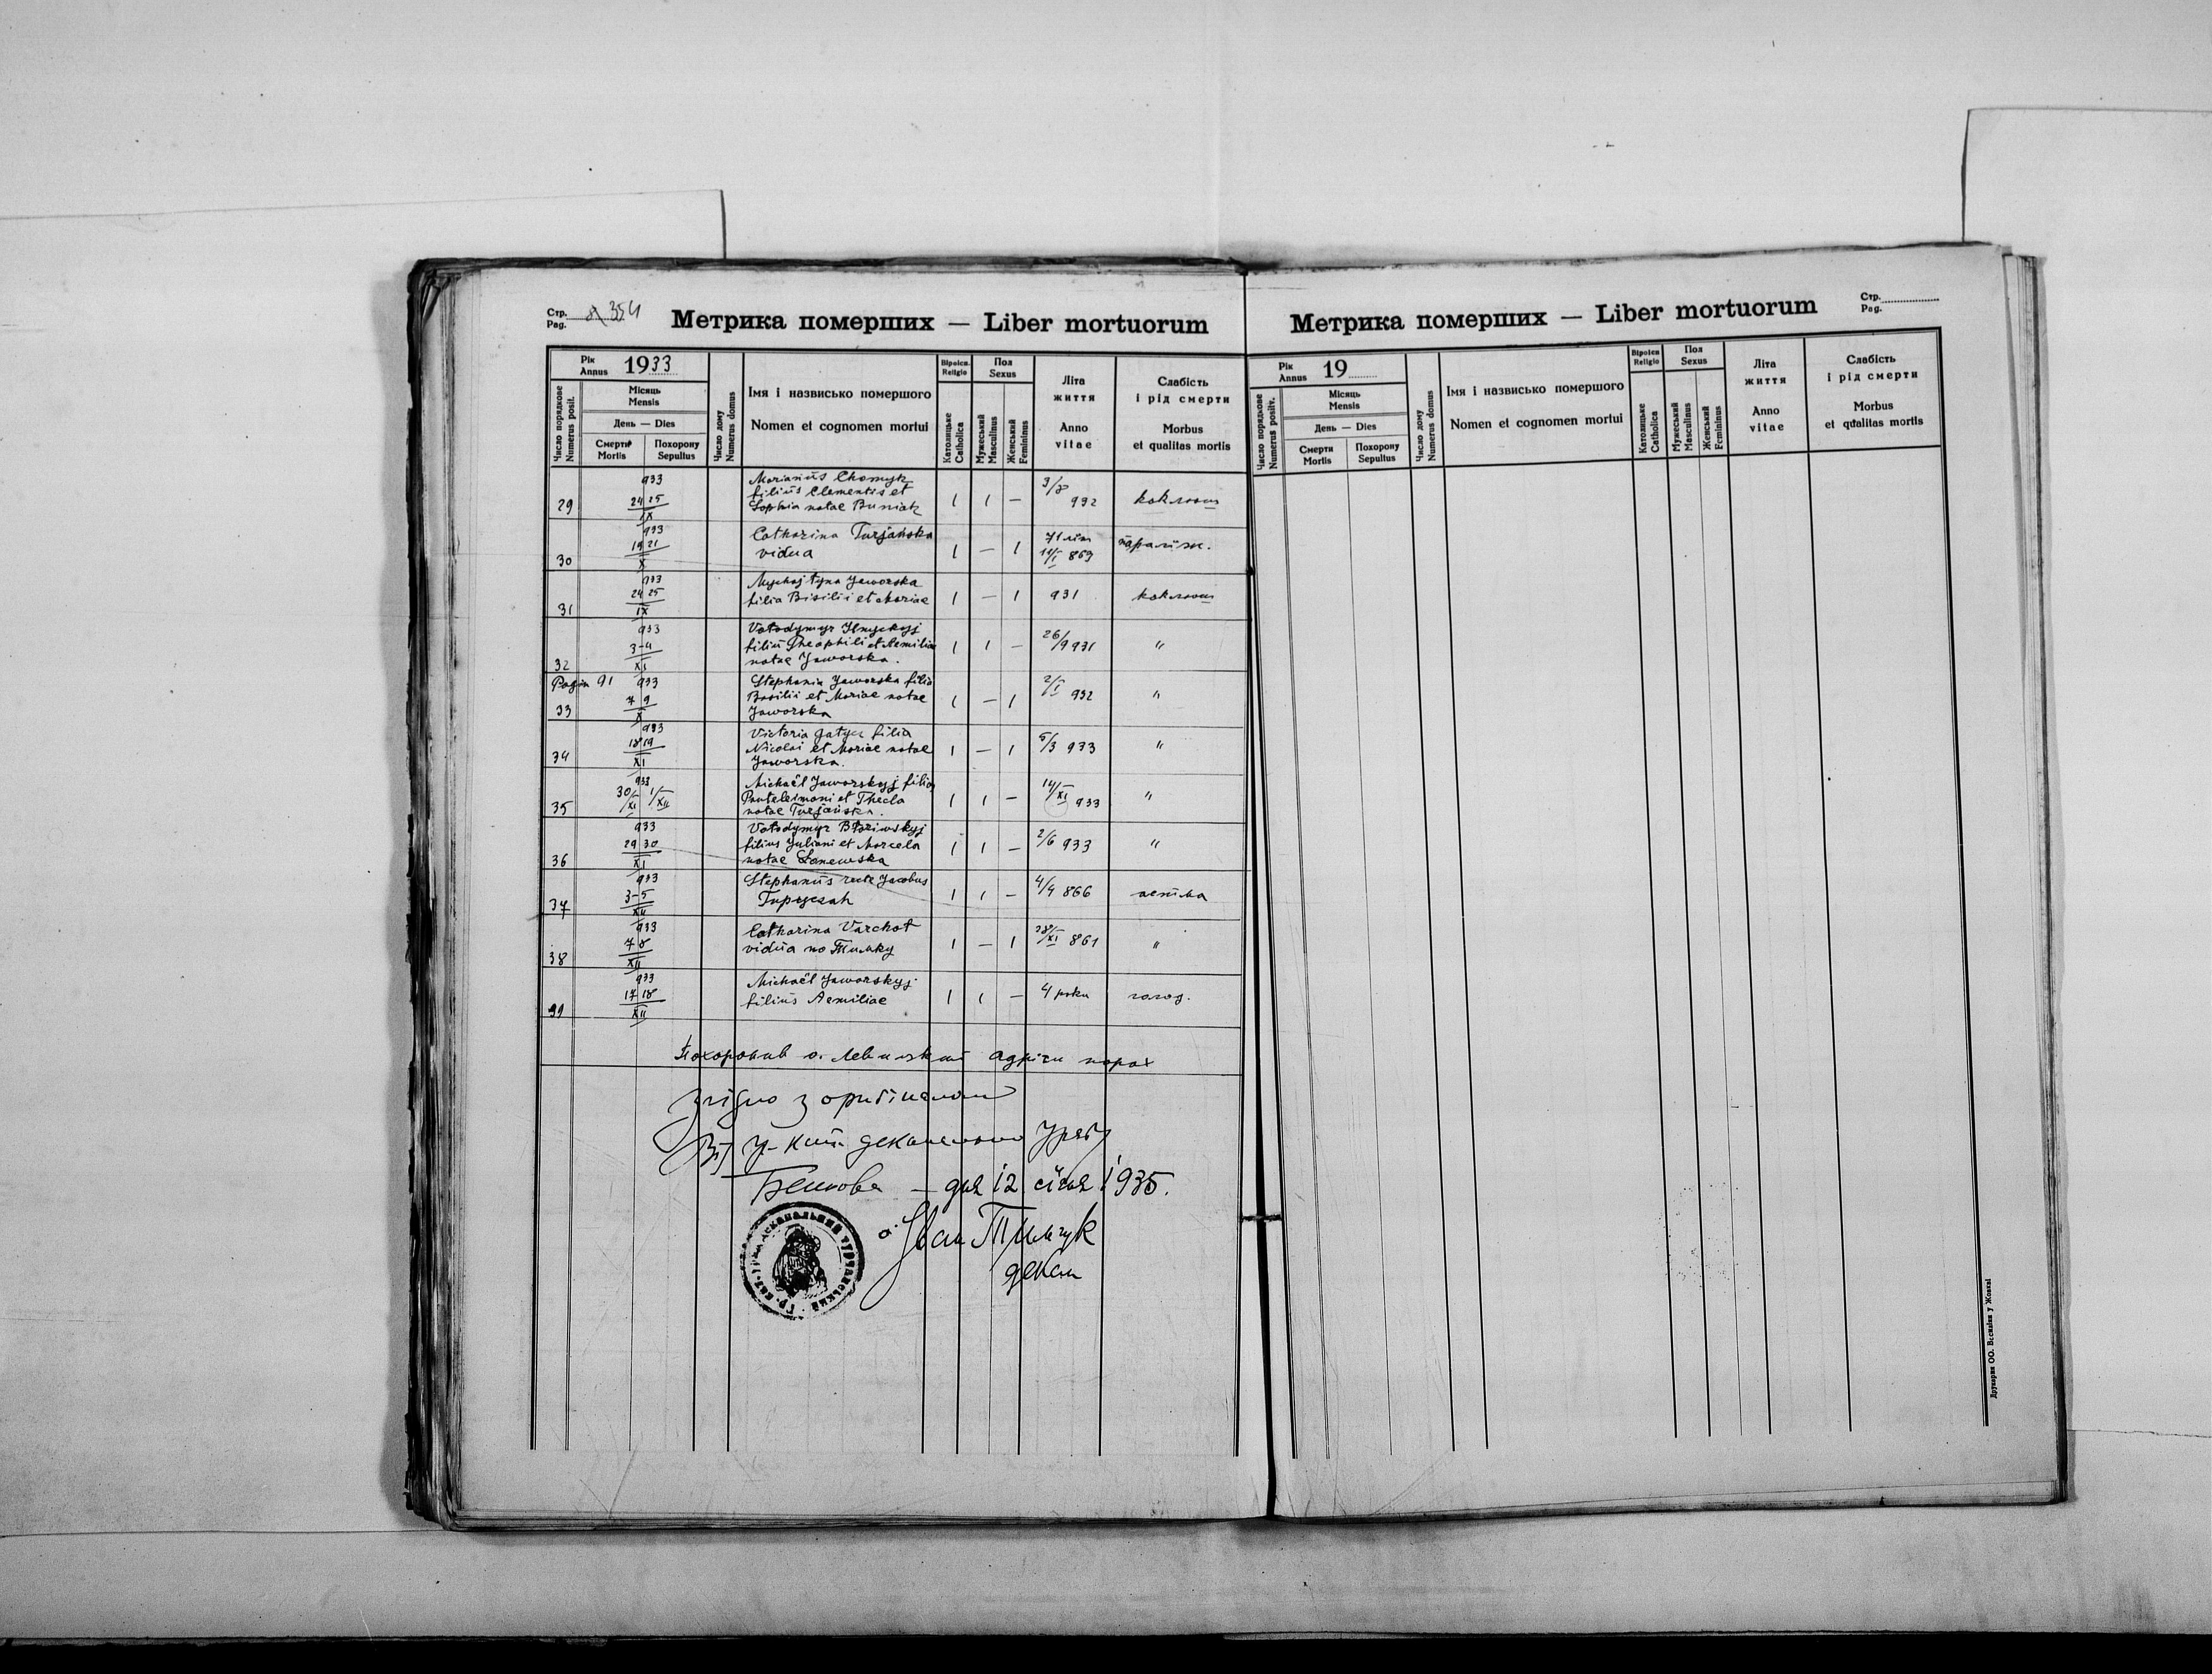 Стр.
Pag. 354
Метрика померших — Liber mortuorum
Рік
Annus 1933
Число порядкове
Numerus posit.
Місяць
Mensis
День — Dies
Смерти
Mortis
Похорону
Sepultus
Число дому
Numerus domus
Імя і назвисько помершого
Nomen et cognomen mortui
Віроісп.
Religio
Католицьке
Catholica
Пол
Sexus
Мужеський
Masculinus
Женський
Femininus
Літа
життя
Anno
vitae
Слабість
і рід смерти
Morbus
et qualitas mortis
29 933 24 25 IX
Marianus Chomyk
filius Clementis et
Sophia natae Buniak
1 1 — 3/8 932 коклюш
30 933 19 21 X
Catharina Turjańska
vidua
1 — 1 71 літ 869 параліж.
31 933 24 25 IX
Mychajłyna Jaworska
filia Basilii et Mariae
1 — 1 931 коклюш
32 933 3-4 XI
Wołodymyr
filius Theophili et Aemiliae
natae Jaworska.
1 1 — 26/9 931 "
Pagina 91
33 933 7 9 X
Stephania Jaworska filia
Basilii et Mariae natae
Jaworska
1 — 1 2/I 932 "
34 933 18 19 XI
Victoria filia
Nicolai et Mariae natae
Jaworska.
1 — 1 5/3 933 "
35 933 30/XI 1/XII
Michaël Jaworskyj filius
Panteleimoni et Thecla
natae Turjańska.
1 1 — 14/XI 933 "
36 933 29 30 XI
Wołodymyr
filius Juliani et Marcela
natae
1 1 — 2/6 933 "
37 933 3-5 XII
Stephanus recte Jacobus
1 1 — 4/4 866 астма
38 933 7 8 XII
Catharina Varchoł
vidua по Тимку
1 — 1 28/XI 861 "
933 17 18 XII
Michaël Jaworskyj
filius Aemiliae
1 1 — 4 роки голод.
Похоронив о. Левицький парох
Згідно з оригіналом
Від гр-кат. деканального Уряду
дня 12 січня 1935.
о. Іван Тимчук
декан
Метрика померших — Liber mortuorum
Стр.
Pag.
Рік
Annus 19
Число порядкове
Numerus positiv.
Місяць
Mensis
День — Dies
Смерти
Mortis
Похорону
Sepultus
Число дому
Numerus domus
Імя і назвисько помершого
Nomen et cognomen mortui
Віроісп
Religio
Католицьке
Catholica
Пол
Sexus
Мужеський
Masculinus
Женський
Femininus
Літа
життя
Anno
vitae
Слабість
і рід смерти
Morbus
et qualitas mortis
Друкарня ОО. Василіян у Жовкві